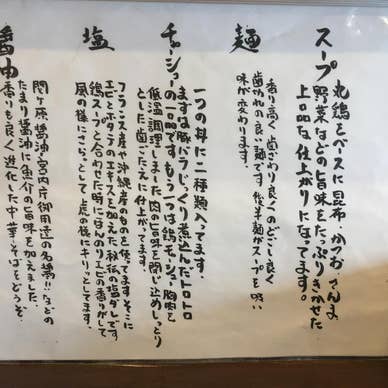 スープ
丸鶏をベースに昆布・かつお・さんま
野菜などの旨味をたっぷりきかせた
上品な仕上がりになってます。
麺
香り高く歯ざわり良くのどごし良く
歯切れの良い麺です。後半麺がスープを吸い
味が変わります。
チャーシュー
一つの丼に二種類入ってます。
まずは豚バラじっくり煮込んだトロトロ
の一品です。もう一つは鶏チャーシュー胸肉を
低温調理しました肉の旨味を閉じ込めしっとり
とした歯ごたえに仕上がってます。
塩
フランス産や沖縄産のものを使ってますそこに
エビとホタテのエキスを加えた秘伝の塩ダレです
鶏スープと合わせた時にほんのりエビの香りがして
風の様にさらっとして虎の様にキリッとしてます。
醤油
関ヶ原醤油・宮内庁御用達の名醤!!などの
たまり醤油に魚介の旨味を加えました。
香りも良く進化した中華そばをどうぞ